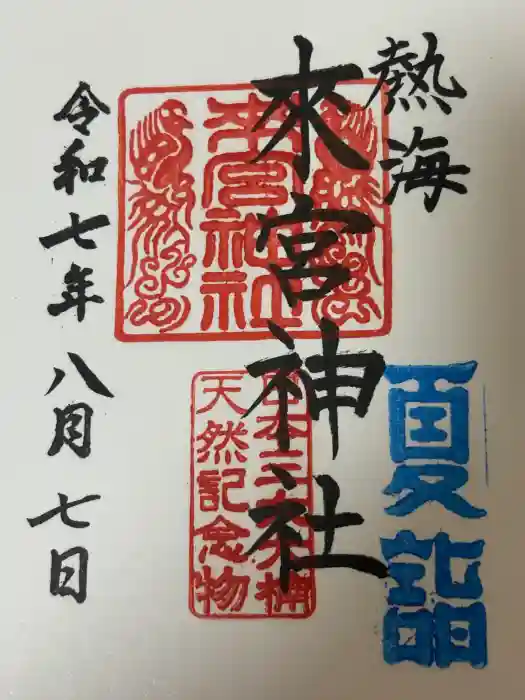 熱海
來宮神社
令和七年八月七日
夏詣
來宮神社
日本三大樟
天然記念物